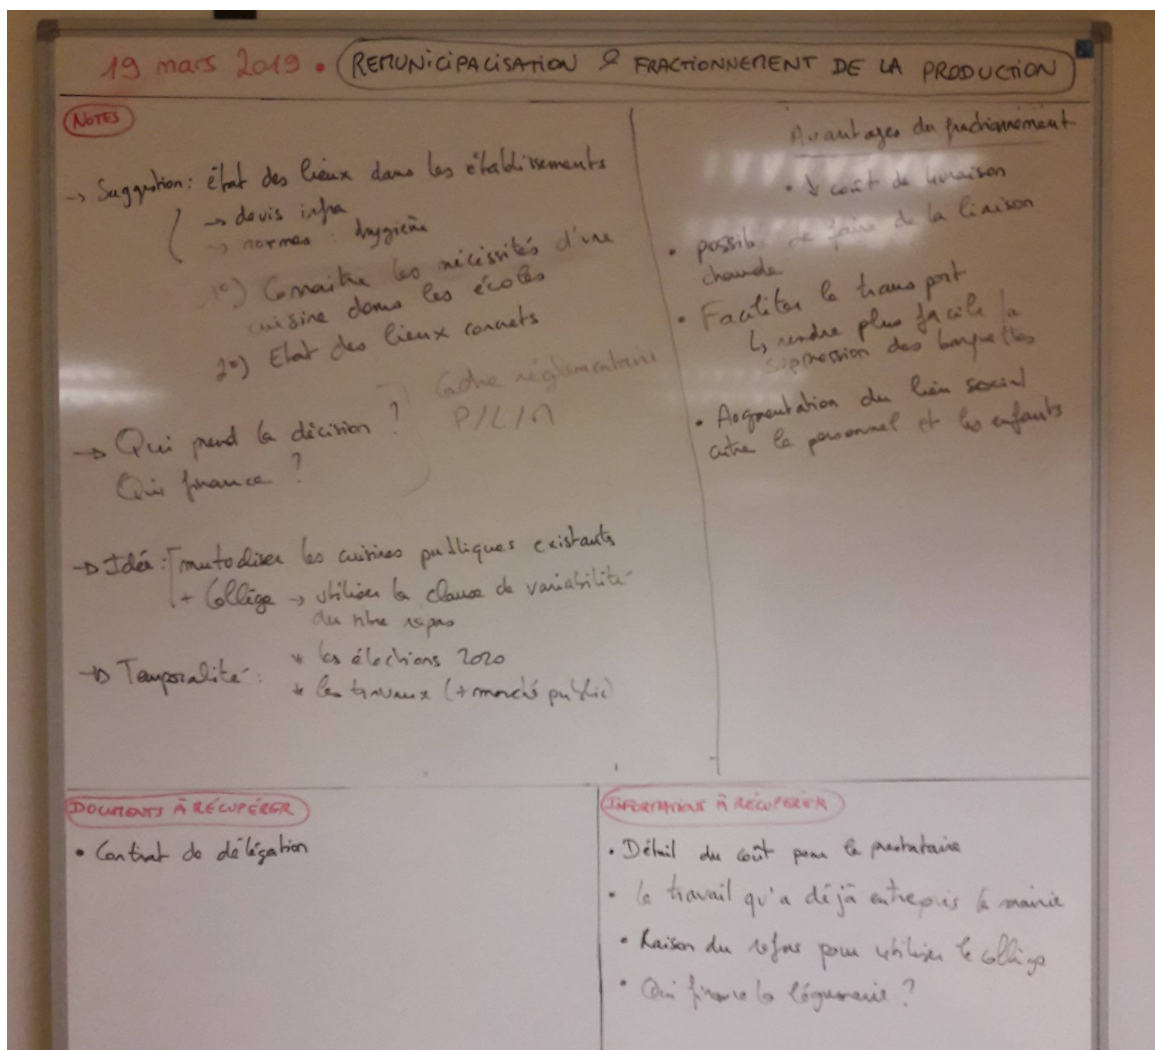 19 mars 2019 • REMUNICIPALISATION & FRACTIONNEMENT DE LA PRODUCTION
NOTES
-> Suggestion: état des lieux dans les établissements
-> devis infra
-> normes : hygiène
1°) Connaitre les nécissités d'une
cuisine dans les écoles
2°) Etat des lieux concrets
-> Qui prend la décision ?
Qui finance ?
Cadre réglementaire
P/L/M
-> Idée : mutualiser les cuisines publiques existants
+ Collège -> utiliser la clause de variabilité
du nbre repas
-> Temporalité : * les élections 2020
* les travaux (+ marché public)
Avantages du fractionnement
• ↓ coût de livraison
• possib. de faire de la liaison
chaude
• Faciliter le transport
↳ rendre plus facile la
suppression des barquettes
• Augmentation du lien social
entre le personnel et les enfants
DOCUMENTS À RÉCUPÉRER
• Contrat de délégation
INFORMATIONS À RÉCUPÉRER
• Détail du coût pour le prestataire
• le travail qu'a déjà entrepris la mairie
• Raison du refus pour utiliser le collège
• Qui finance la légumerie ?